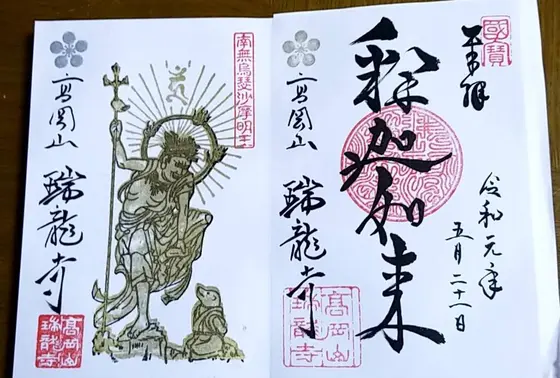 國寶
奉拝
令和元年
五月二十一日
釈迦如来
高岡山 瑞龍寺
高岡山
瑞龍寺
南無烏瑟沙摩明王
高岡山 瑞龍寺
高岡山
瑞龍寺